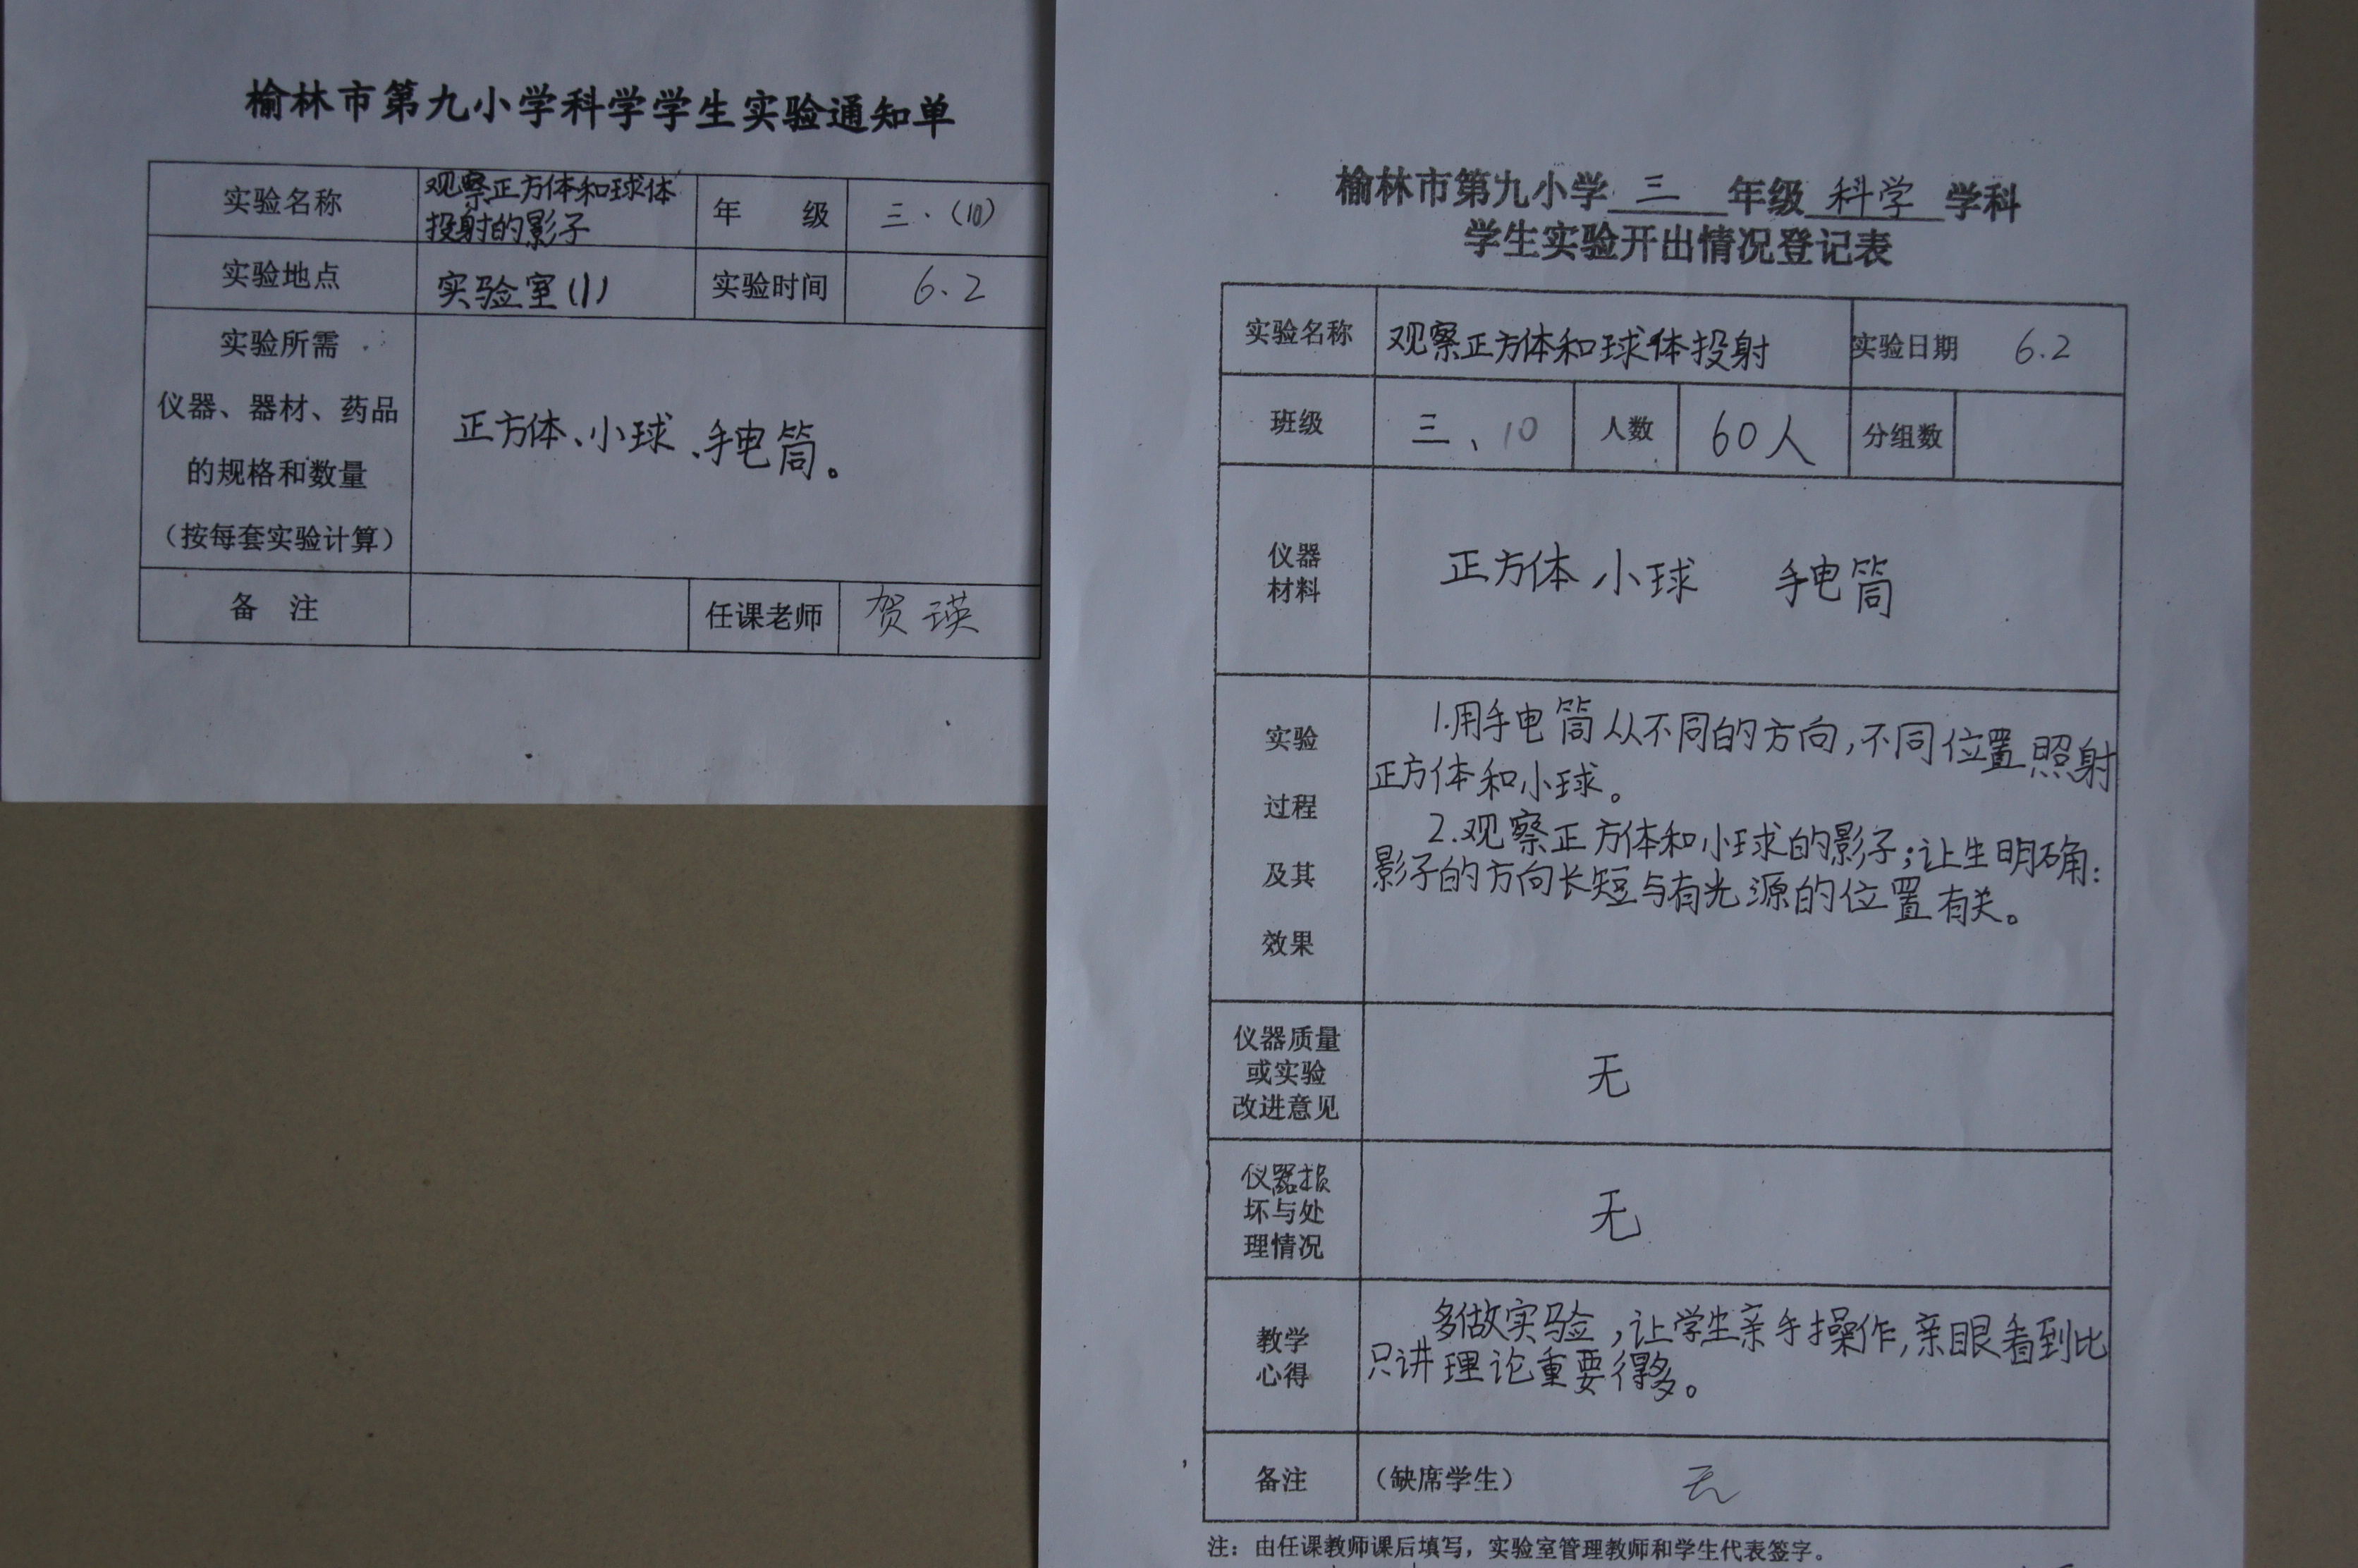 榆林市第九小学科学学生实验通知单
实验名称 观察正方体和球体投射的影子 年 级 三、(10)
实验地点 实验室(1) 实验时间 6.2
实验所需
仪器、器材、药品
的规格和数量
（按每套实验计算）
正方体、小球、手电筒。
备 注 任课老师 贺瑛
榆林市第九小学 三 年级 科学 学科
学生实验开出情况登记表
实验名称 观察正方体和球体投射 实验日期 6.2
班级 三、10 人数 60人 分组数
仪器
材料
正方体 小球 手电筒
实验
过程
及其
效果
1.用手电筒从不同的方向,不同位置照射
正方体和小球。
2.观察正方体和小球的影子;让生明确:
影子的方向长短与有光源的位置有关。
仪器质量
或实验
改进意见
无
仪器损
坏与处
理情况
无
教学
心得
多做实验,让学生亲手操作,亲眼看到比
只讲理论重要得多。
备注 （缺席学生） 无
注：由任课教师课后填写，实验室管理教师和学生代表签字。